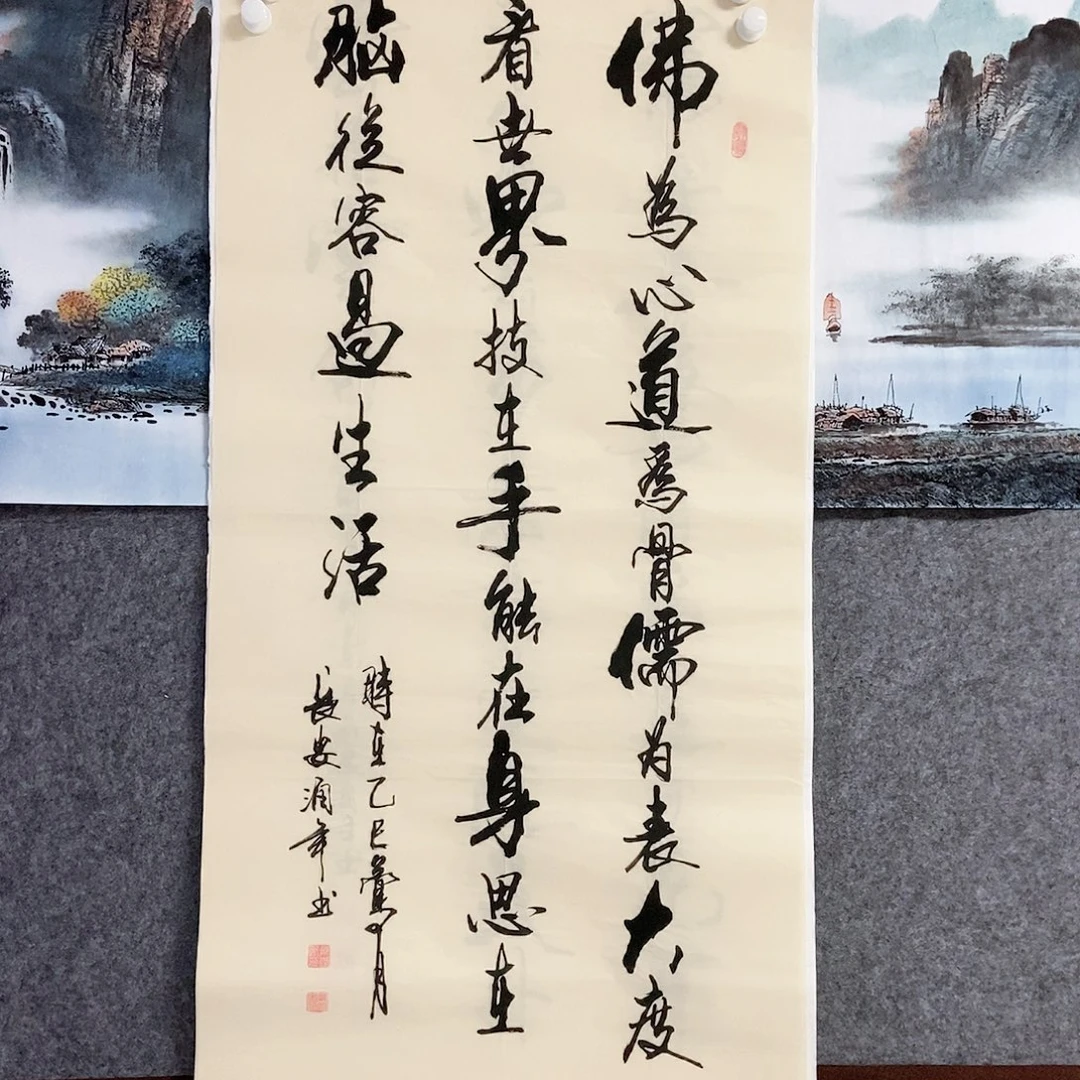 佛為心道為骨儒为表大度
看世界技在手能在身思在
腦從容過生活
時在乙巳夏月
長安潤年书